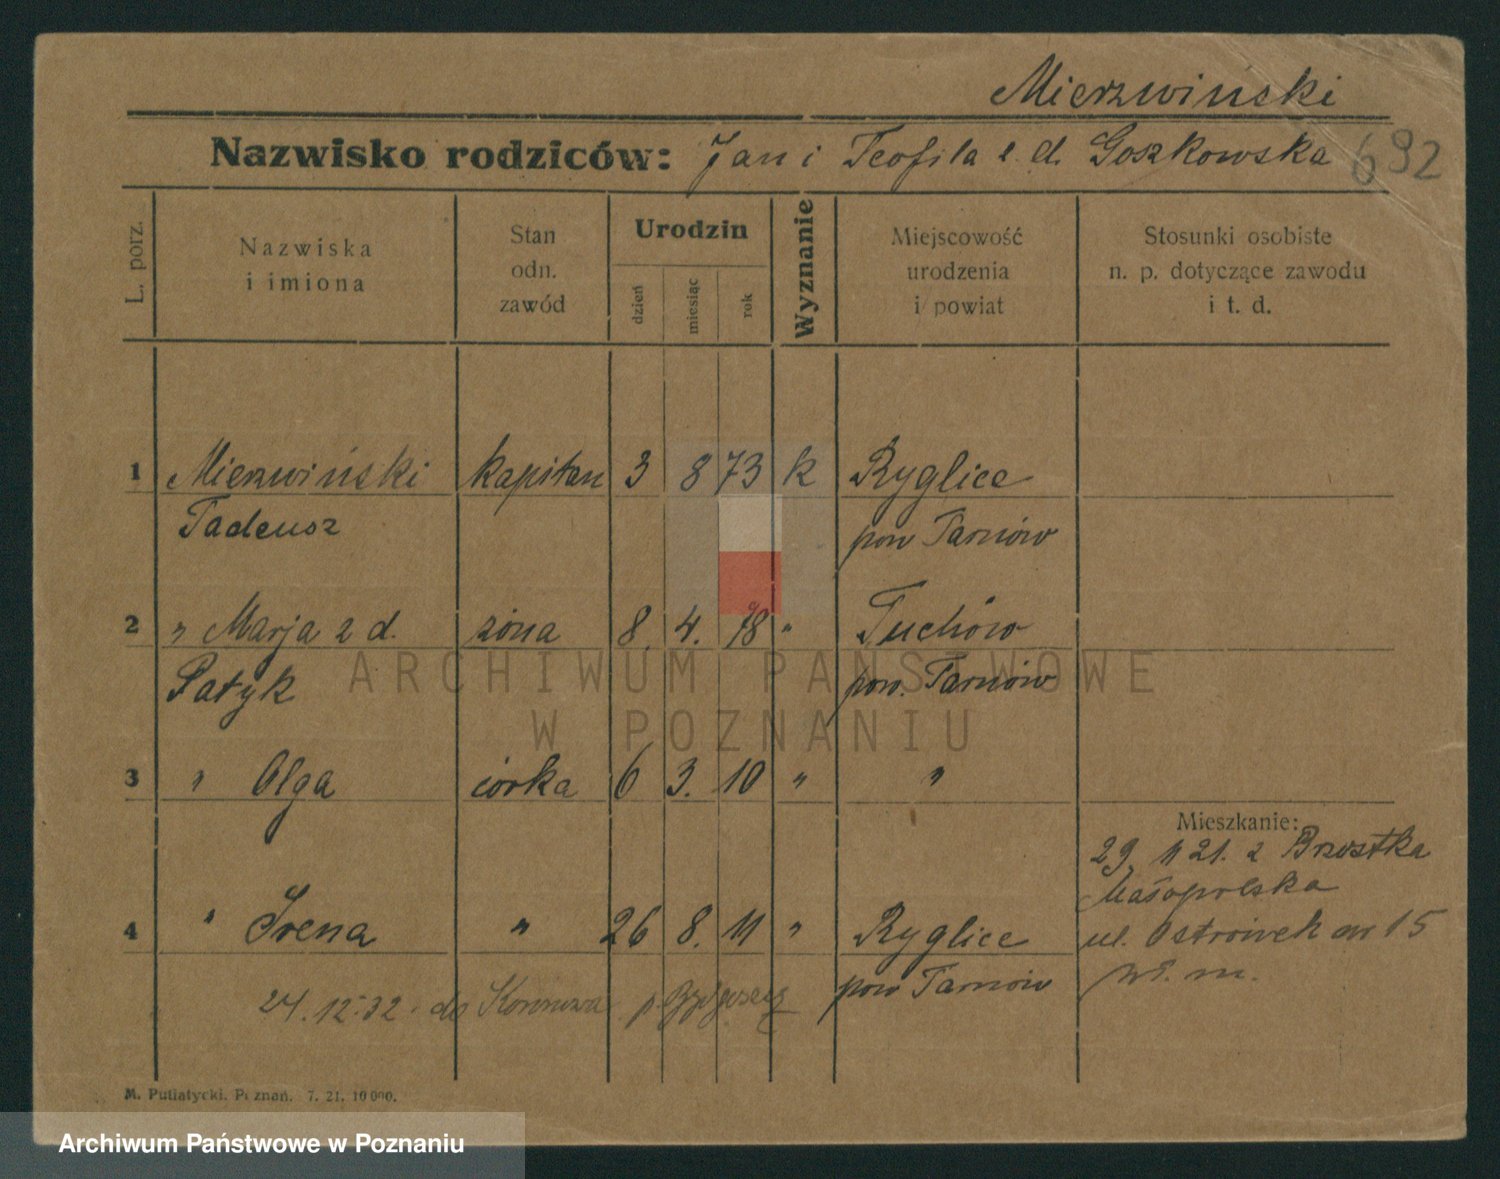 Mierzwiński
Nazwisko rodziców: Jan i Teofila z d. Goszkowska 692
L. porz.
Nazwiska
i imiona
Stan
odn.
zawód
Urodzin
dzień
miesiąc
rok
Wyznanie
Miejscowość
urodzenia
i powiat
Stosunki osobiste
n. p. dotyczące zawodu
i t. d.
1 Mierzwiński kapitan 3 8 73 k Ryglice
Tadeusz pow Tarnów
2 " Marja z d. żona 8. 4. 78 " Tuchów
Patyk pow. Tarnów
3 " Olga córka 6 3. 10 " "
Mieszkanie:
29 11 21. z Brzostka
Małopolska
4 " Irena " 26 8. 11 " Ryglice
pow Tarnów
ul. Ostrówek nr 15
24.12.32. do Koronowa p. Bydgoszcz
M. Putiatycki. Poznań. 7. 21. 10 000.
ARCHIWUM PAŃSTWOWE
W POZNANIU
Archiwum Państwowe w Poznaniu